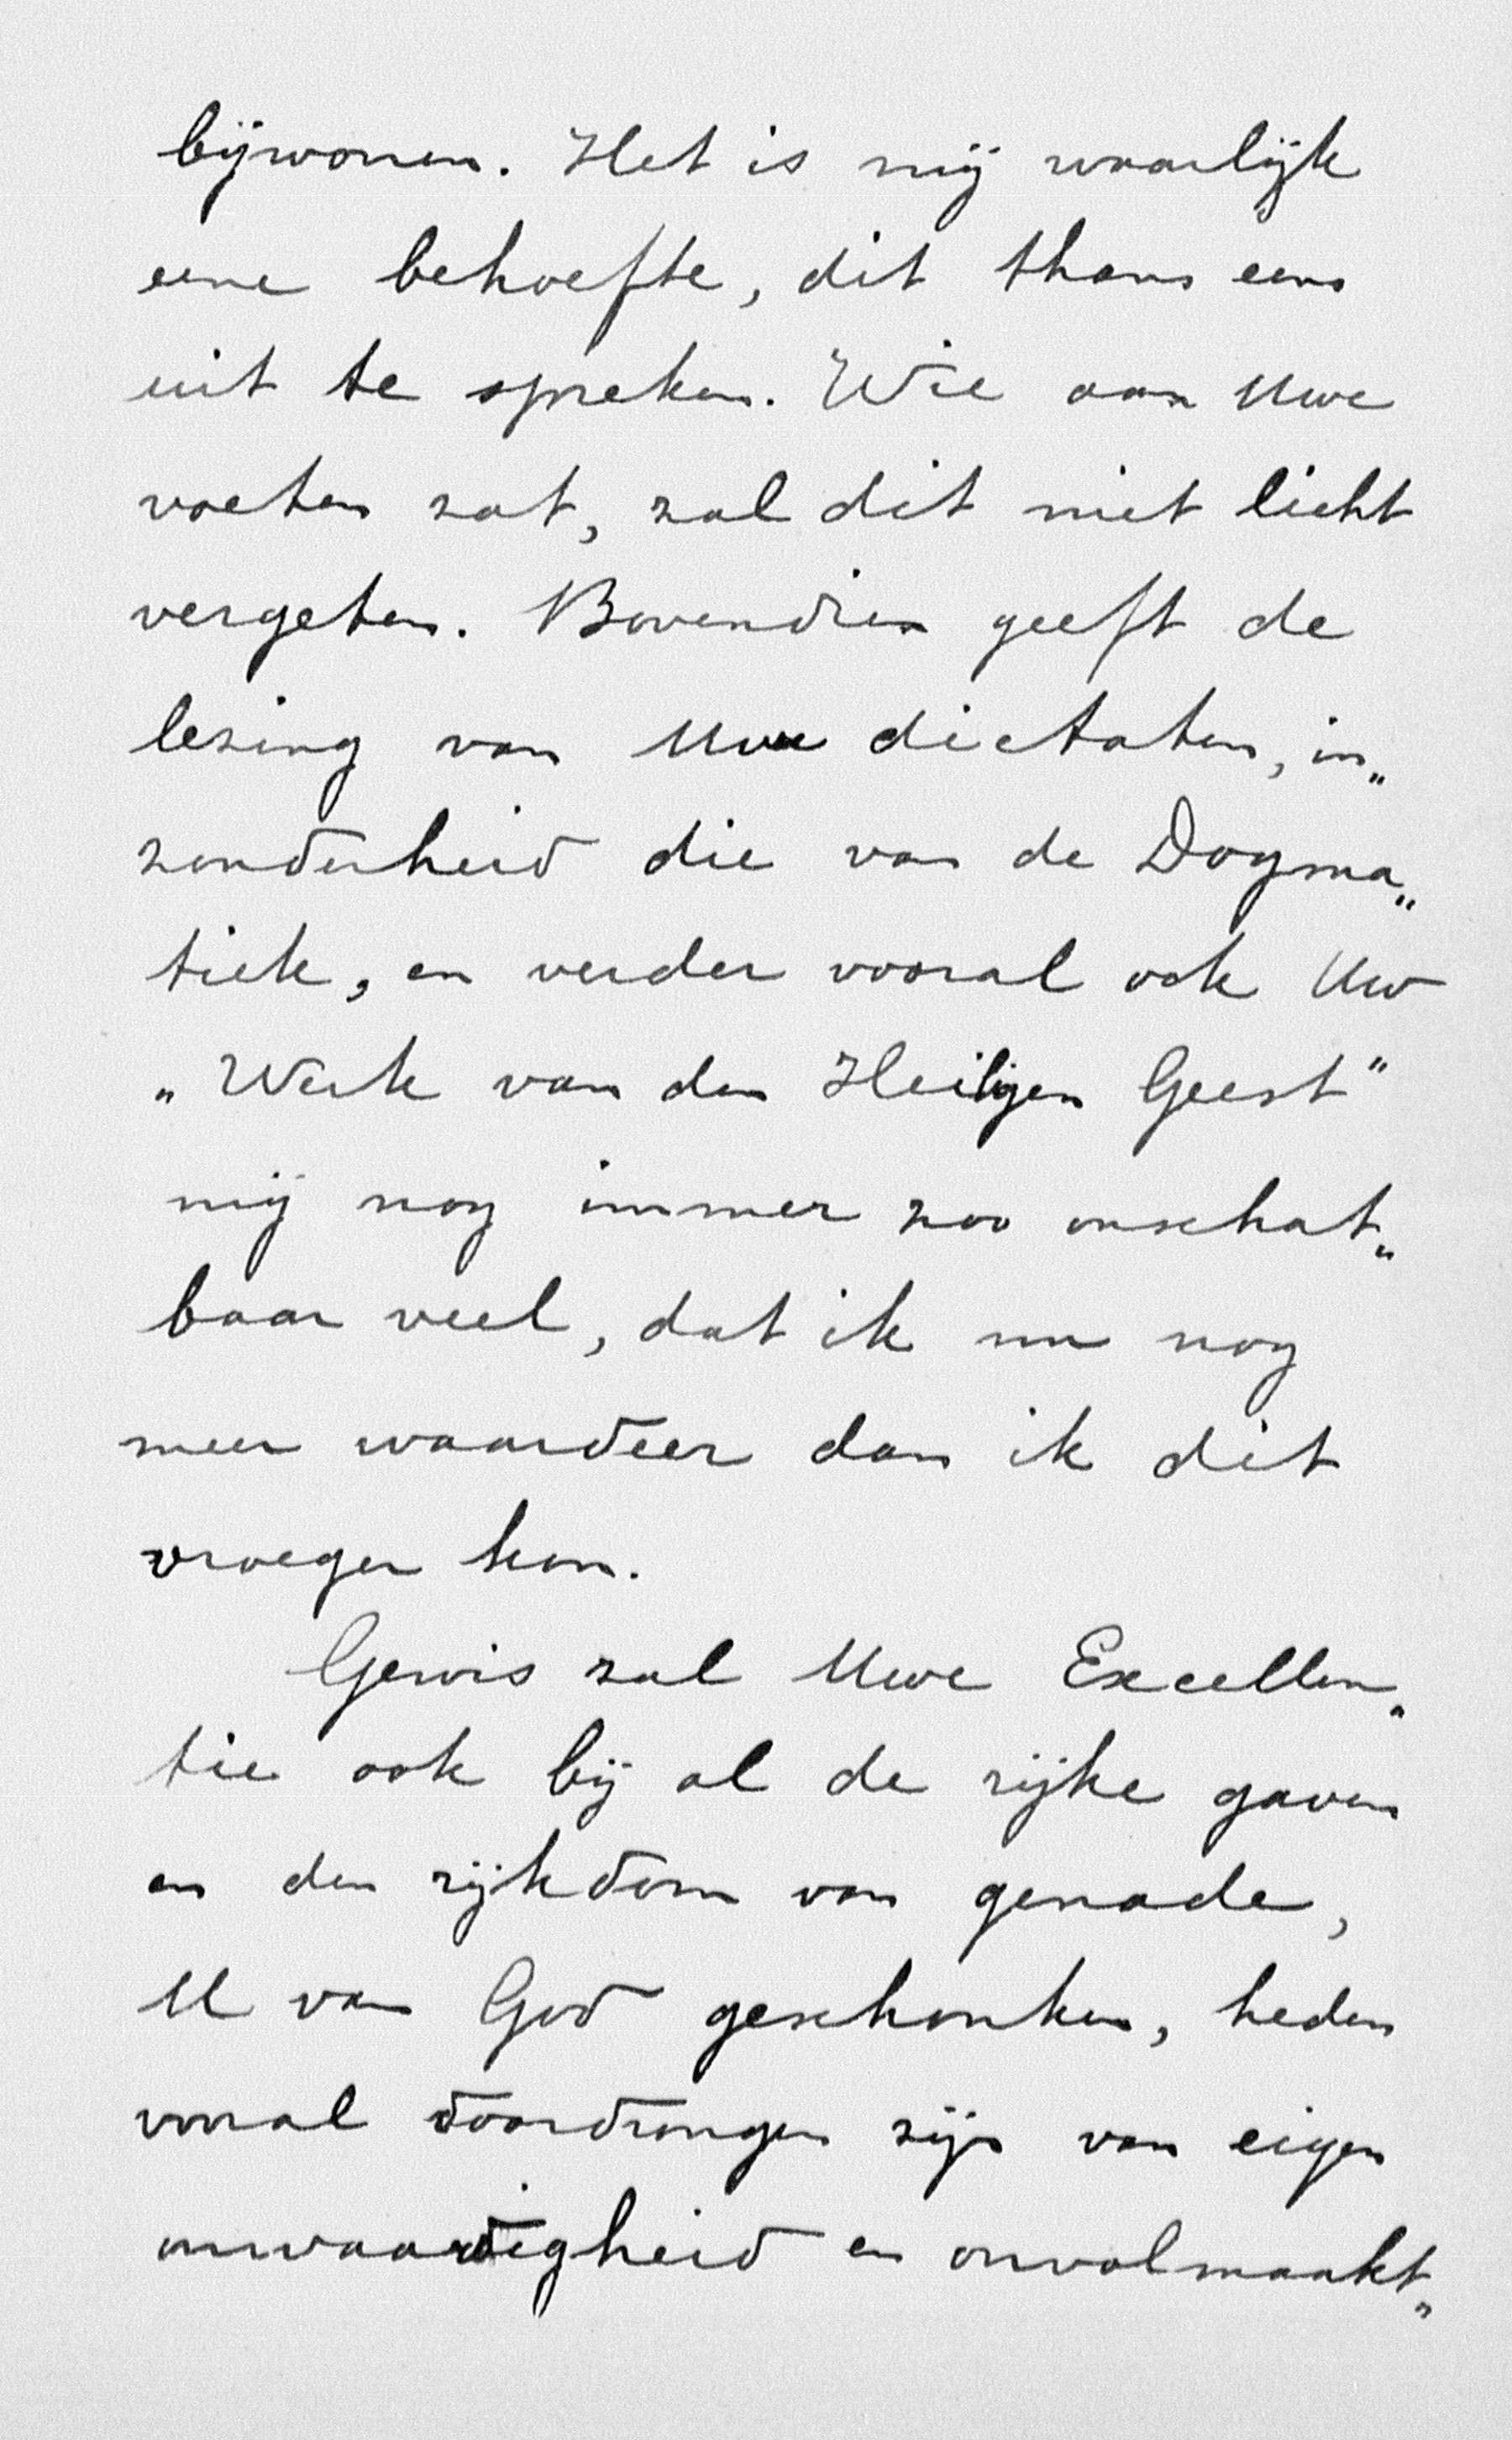 bijwonen. Het is mij waarlijk
eene behoefte, dit thans eens
uit te spreken. Wie aan Uwe
voeten zat, zal dit niet licht
vergeten. Bovendien geeft de
lezing van Uwe dictaten, in„
zonderheid die van de Dogma„
tiek, en verder vooral ook Uw
„Werk van den Heiligen Geest"
mij nog immer zoo onschat„
baar veel, dat ik nu nog
meer waardeer dan ik dit
vroeger kon.
Gewis zal Uwe Excellen„
tie ook bij al de rijke gaven
en den rijkdom van genade,
U van God geschonken, heden
vooral doordrongen zijn van eigen
onwaardigheid en onvolmaakt„